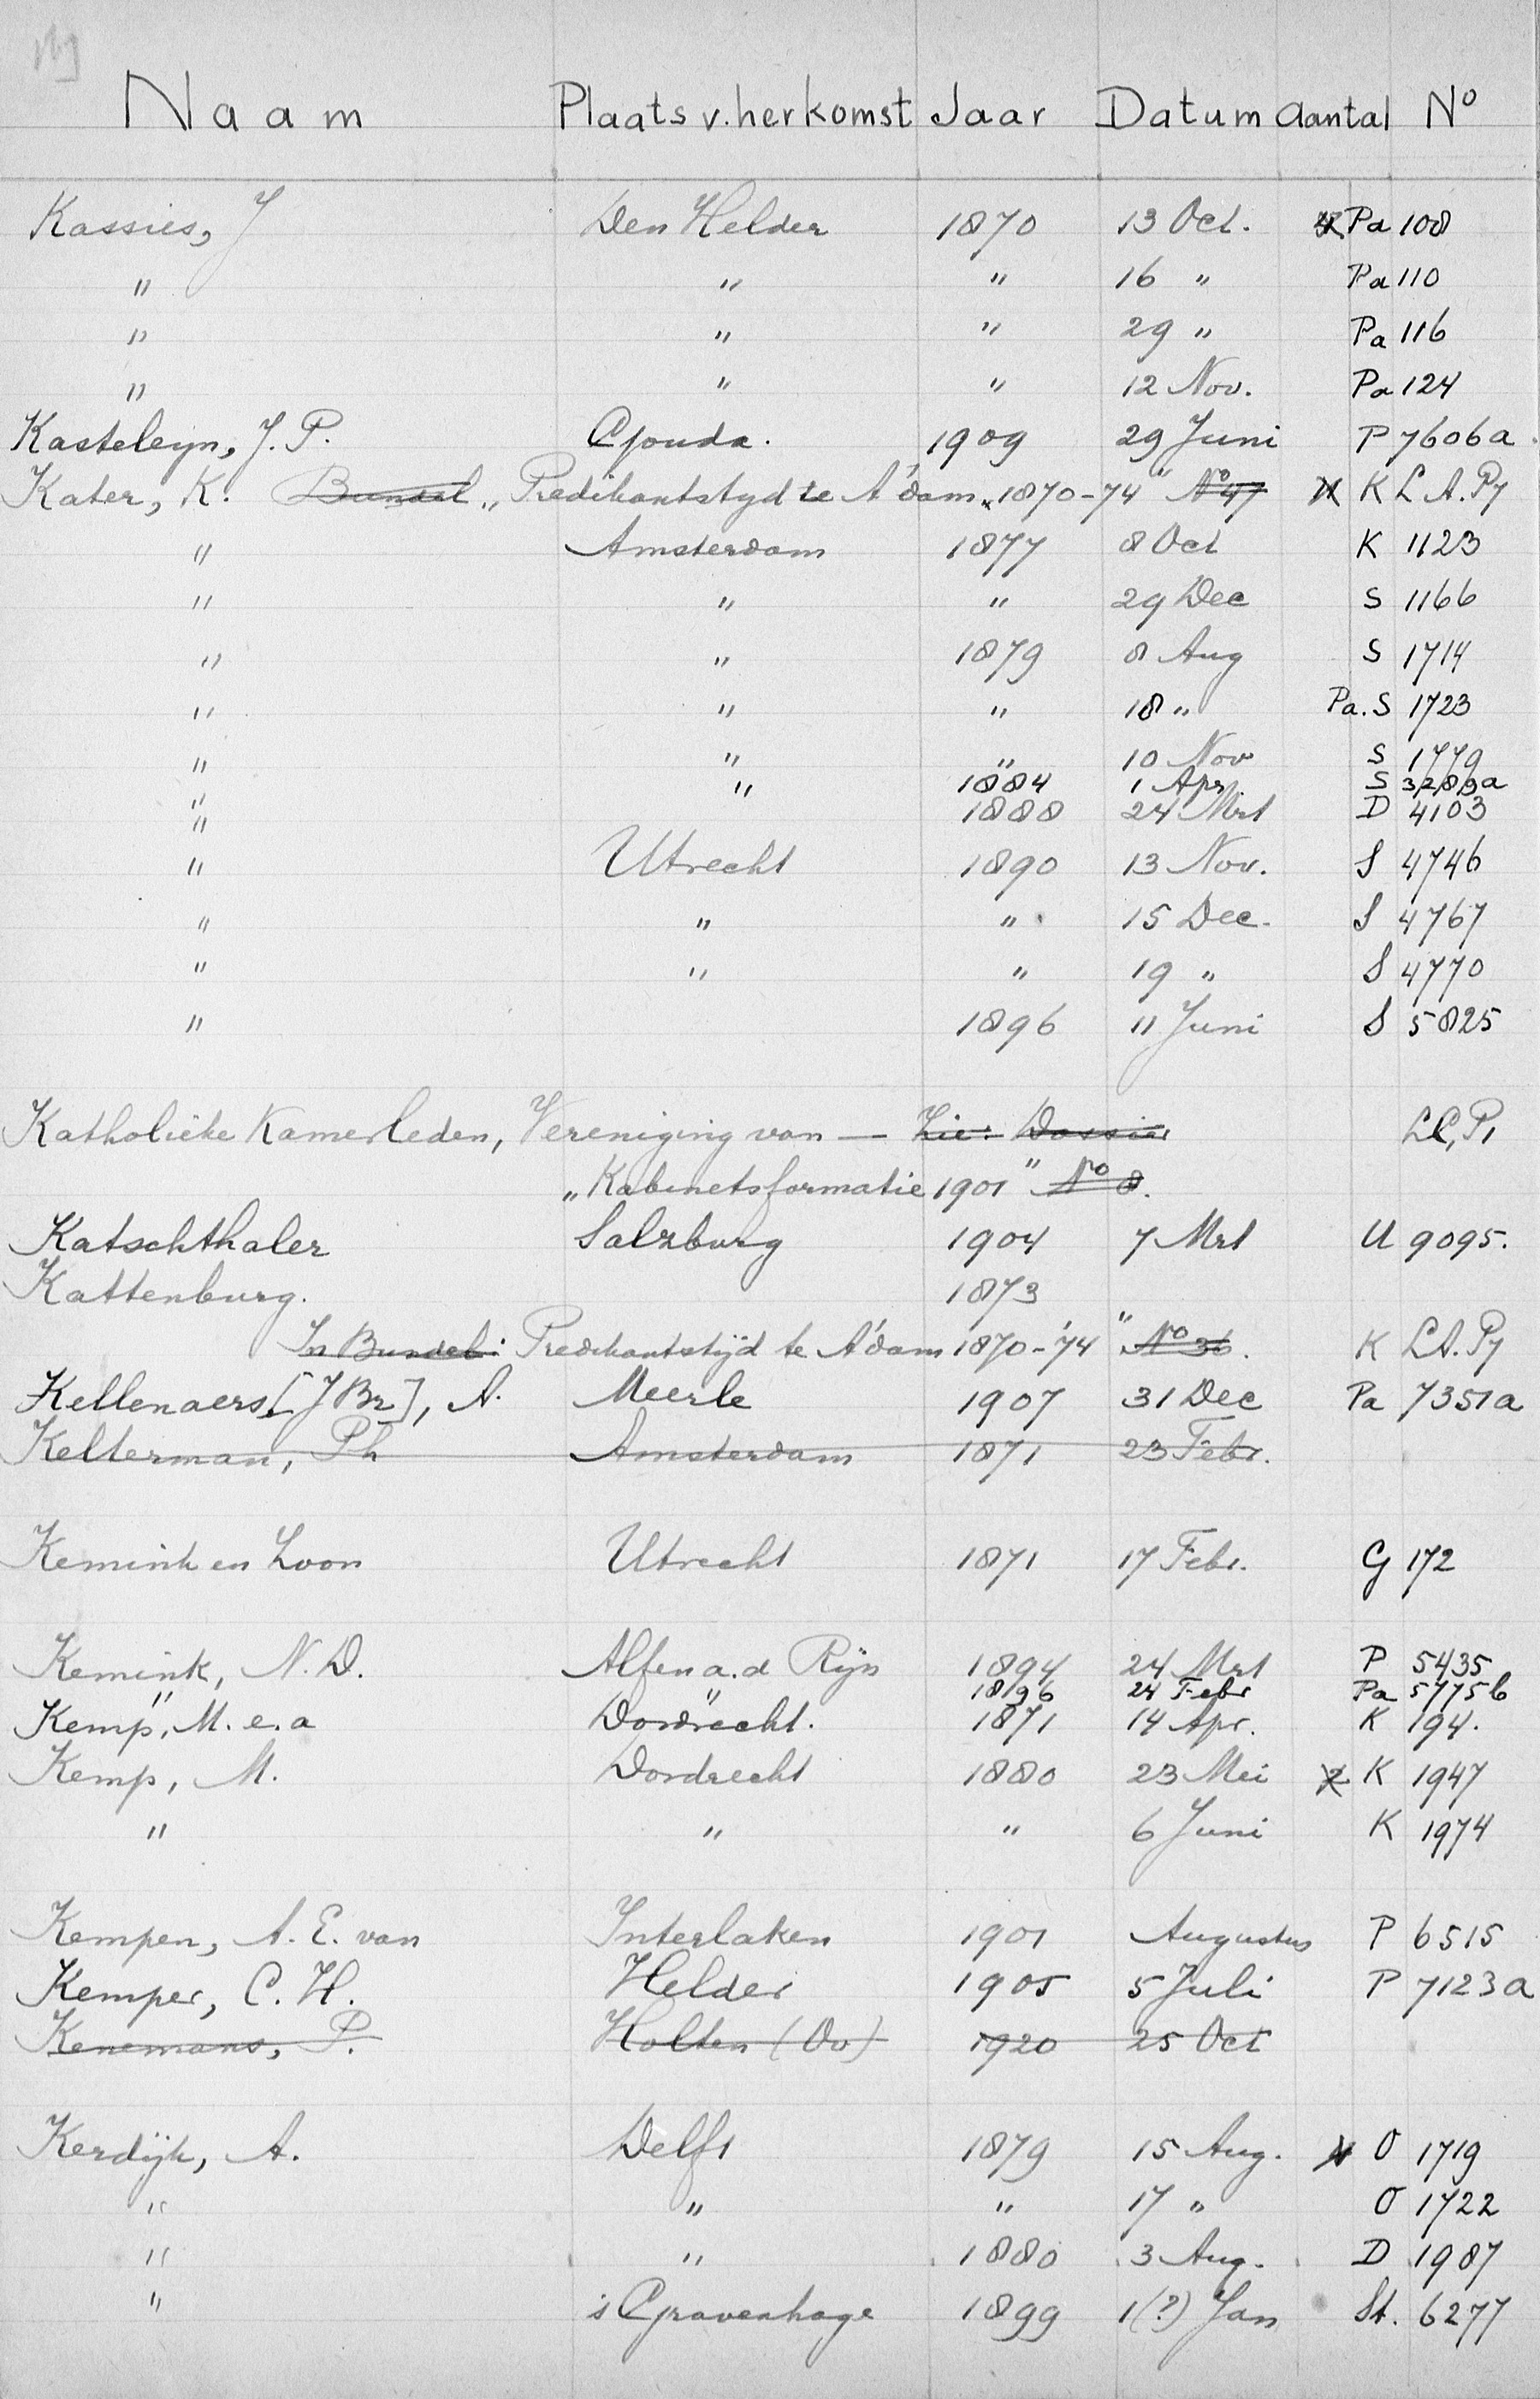 Naam Plaats v. herkomst Jaar Datum aantal No
Kassies, J Den Helder 1870 13 Oct. Pa 108
" " " 16 " Pa 110
" " " 29 " Pa 116
" " " 12 Nov. Pa 124
Kasteleyn, J. P. Gouda. 1909 29 Juni P 7606a.
Kater, K. Bundel „Predikantstyd te A'dam 1870-74" No 47 K L A. P7
" Amsterdam 1877 8 Oct K 1123
" " " 29 Dec S 1166
" " 1879 8 Aug S 1714
" " " 18 " Pa. S 1723
" " " 10 Nov S 1779
" " 1884 1 Apr. S 3289a
" 1888 24 Mrt D 4103
" Utrecht 1890 13 Nov. S 4746
" " " 15 Dec. S 4767
" " " 19 " S 4770
" 1896 11 Juni S 5825
Katholieke Kamerleden, Vereniging van — Zie: Dossier LC, P1
„Kabinetsformatie 1901" No 8.
Katschthaler Salzburg 1904 7 Mrt U 9095.
Kattenburg. 1873
In Bundel: Predikantstijd te A'dam 1870-'74 " No 36. K LA. P7
Kellenaers [J Br], A. Meerle 1907 31 Dec Pa 7351a
Kelterman, Ph Amsterdam 1871 23 Febr.
Kemink en Zoon Utrecht 1871 17 Febr. G 172
Kemink, N. D. Alfen a. d Rijn 1894 24 Mrt P 5435
" " 1896 24 Febr Pa 5775b
Kemp, M. e. a Dordrecht. 1871 14 Apr. K 194.
Kemp, M. Dordrecht 1880 23 Mei 2 K 1947
" " " 6 Juni K 1974
Kempen, A. E. van Interlaken 1901 Augustus P 6515
Kemper, C. H. Helder 1905 5 Juli P 7123a
Kenemans, P. Holten (Ov) 1920 25 Oct
Kerdijk, A. Delft 1879 15 Aug. O 1719
" " " 17 " O 1722
" " 1880 3 Aug. D 1987
" s Gravenhage 1899 1(?) Jan St. 6277